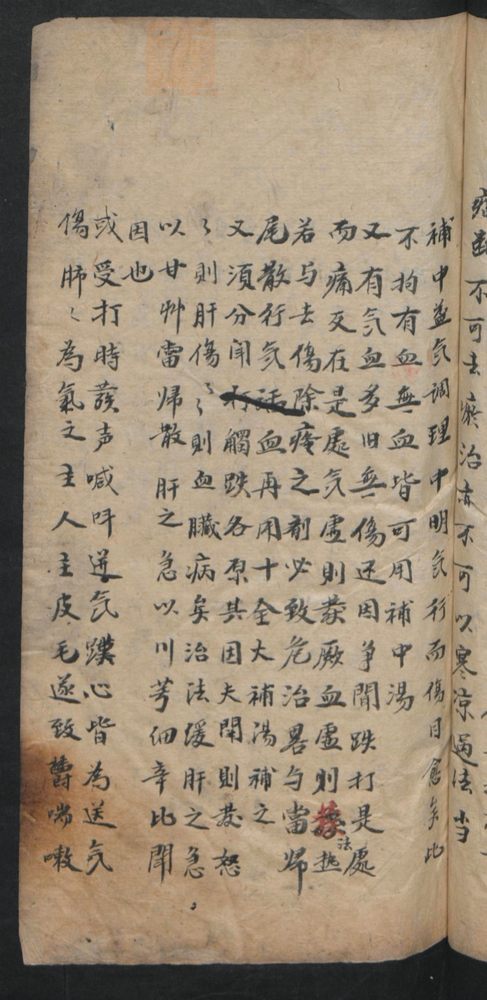 症勿不可去瘀治亦不可以寒凉過法当
補中益气調理中明気行而傷自愈矣比
不拘有血無血皆可用補中湯
又有気血多旧無傷还因争閙跌打是處
而痛反在是處気虚則發厥血虚則發热法
若与去傷除瘀之剤必致危治畧与當歸
尾散行気活血再用十全大補湯補之
又須分閙打觸跌各原其因夫閙則發怒
〻則肝傷〻〻則血臟病矣治法缓肝之急
以甘艸當歸散肝之急以川芎细辛比閙
因也
或受打時發声喊呌逆気蹼心皆為送気
傷肺〻為氣之主人主皮毛遂致欝喘嗽